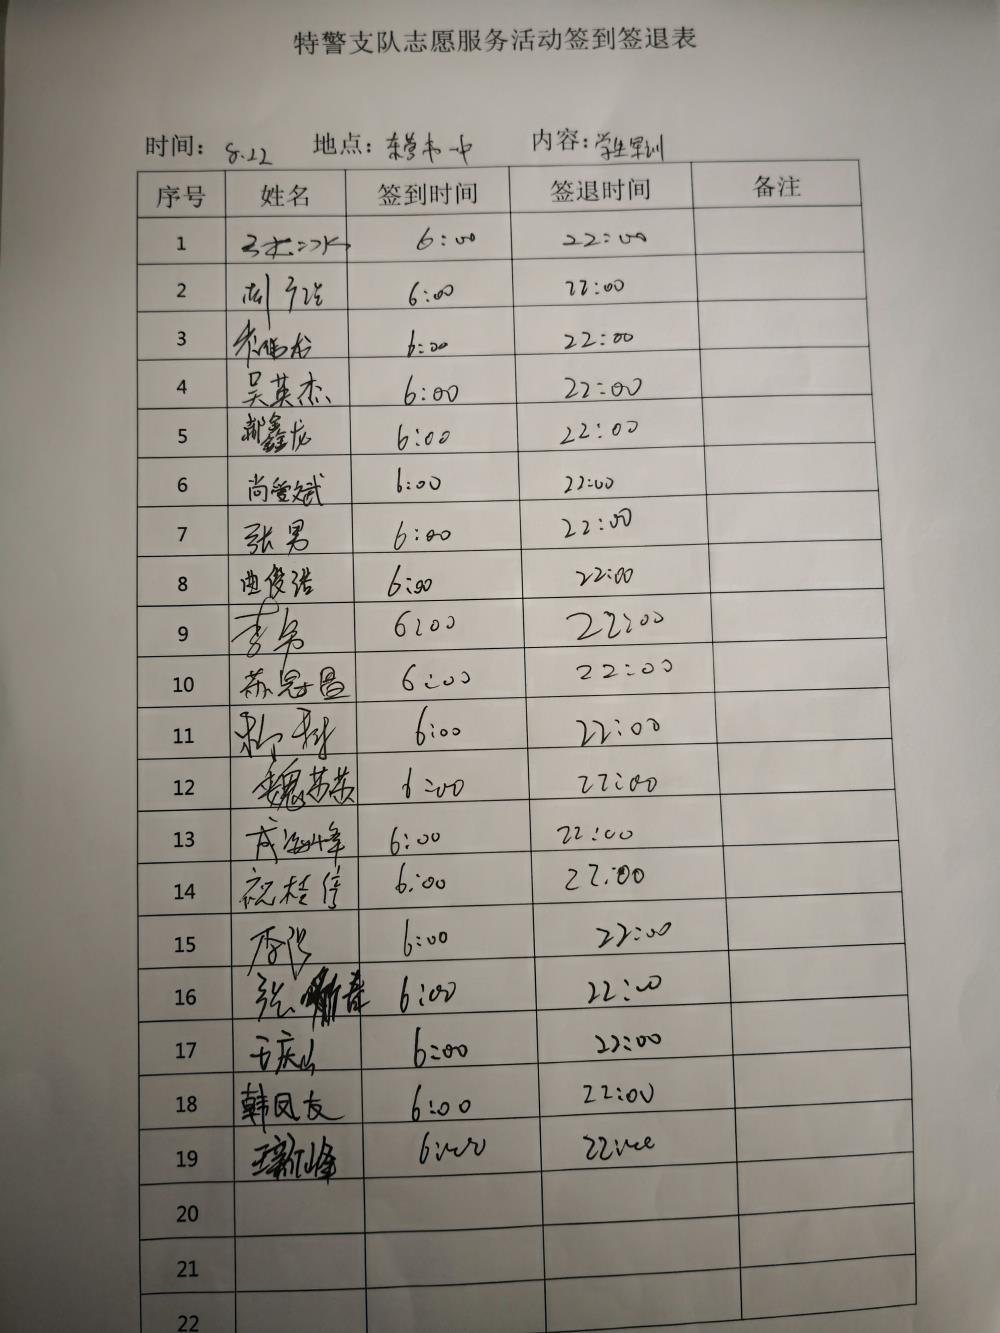 特警支队志愿服务活动签到签退表
时间：8.22 地点：东营市一中 内容：学生军训
序号 姓名 签到时间 签退时间 备注
1 6:00 22:00
2 6:00 22:00
3 6:00 22:00
4 吴英杰 6:00 22:00
5 郝鑫龙 6:00 22:00
6 尚爱斌 6:00 22:00
7 张男 6:00 22:00
8 曲俊浩 6:00 22:00
9 6:00 22:00
10 苏冠昌 6:00 22:00
11 6:00 22:00
12 魏芳芳 6:00 22:00
13 成海峰 6:00 22:00
14 祝桂停 6:00 22:00
15 6:00 22:00
16 6:00 22:00
17 于庆山 6:00 22:00
18 韩凤友 6:00 22:00
19 王新峰 6:00 22:00
20
21
22